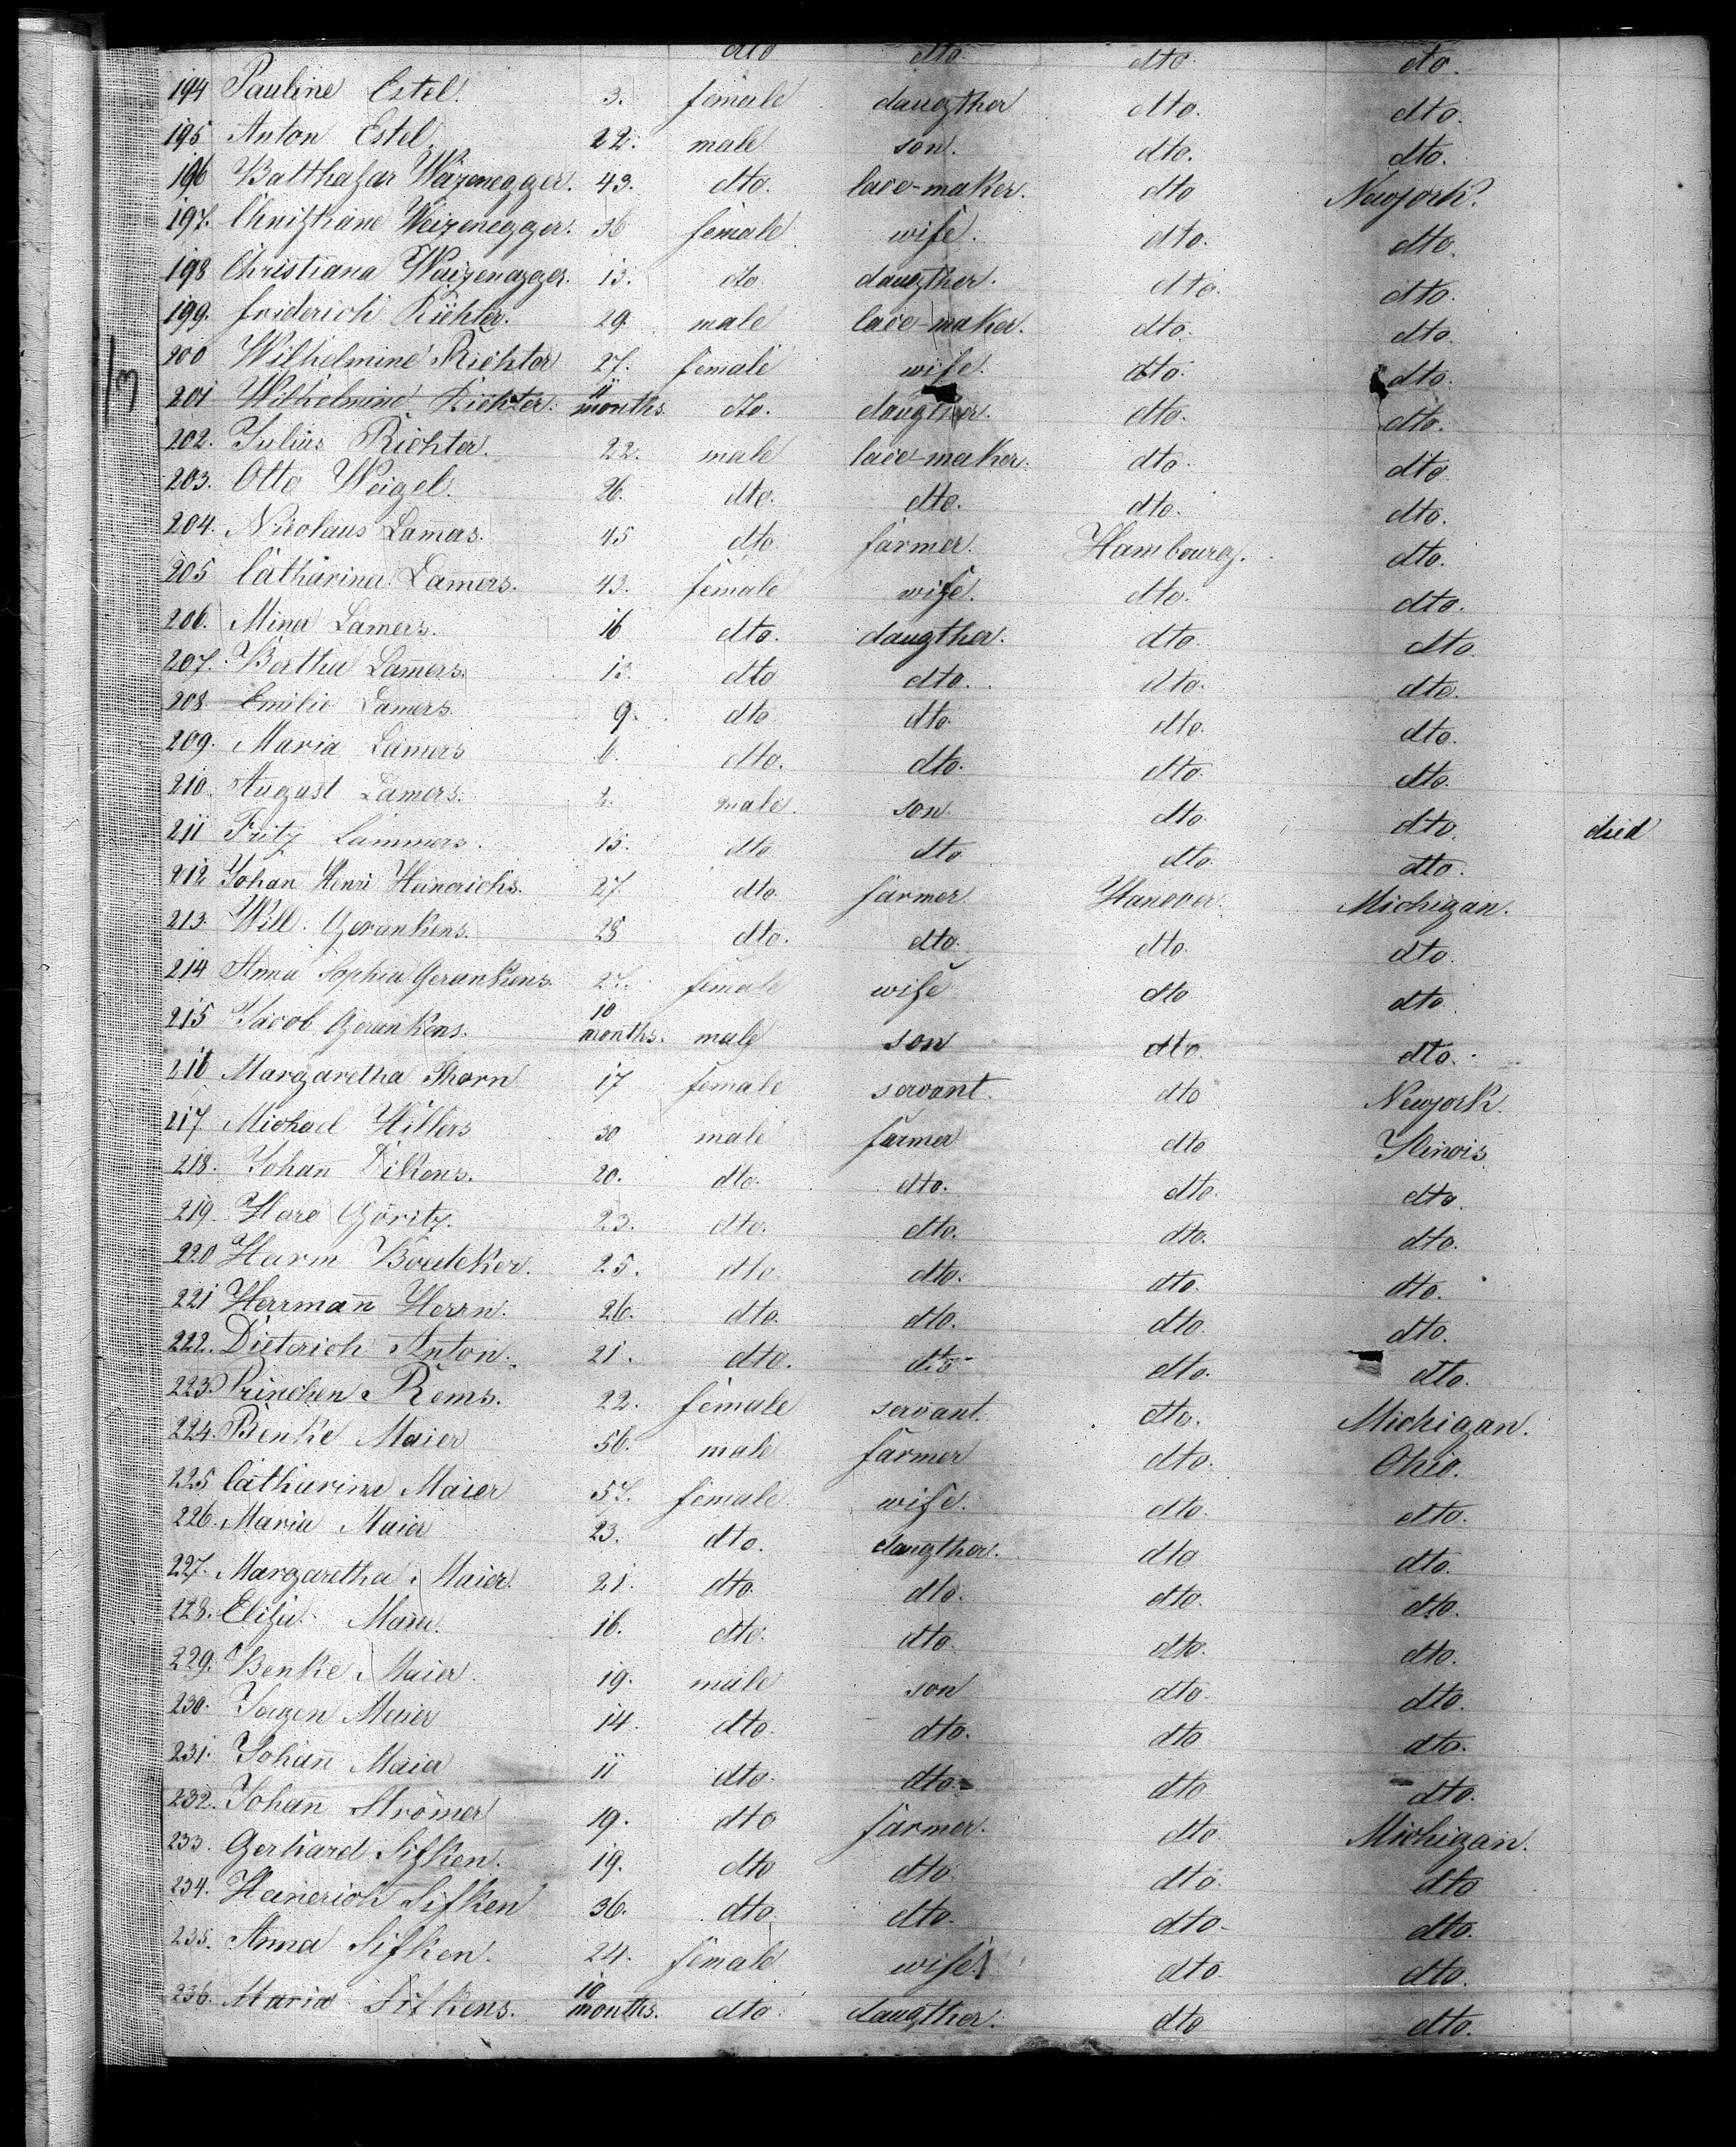 dto dto dto dto.
194 Pauline Estel. 3. female daugther dto. dto.
195 Anton Estel. 22. male son. dto. dto.
196 Balthasar Waizenegger. 43. dto. lace-maker. dto Newjork.
197. Weizenegger. 36 female wife. dto. dto.
198 Christiana Waizenegger. 13. dto daugther. dto. dto.
199. friderich Richter. 29. male lace-maker. dto. dto.
200 Wilhelmine Richter 27. female wife. dto. dto.
201 Wilhelmine Richter. 11 months. dto. daugther. dto. dto.
202. Julius Richter. 22. male lace-maker. dto. dto
203. Otto Weigel. 26. dto. dto. dto. dto.
204. Nicolaus Lamers. 45 dto. farmer. Hambourg. dto.
205 Catharina Lamers. 43. female wife. dto. dto.
206. Mina Lamers. 16 dto. daugther. dto. dto.
207. Bertha Lamers. 13. dto dto. dto. dto.
208 Emilie Lamers. 9. dto dto. dto. dto.
209. Maria Lamers 6. dto. dto. dto. dto.
210. August Lamers. male son dto. dto.
211 Fritz Lammers. 15. dto dto dto. dto. died
212 Johan Henri Heinerichs. 27. dto. farmer Hanover. Michigan.
213. Will. Gerankens. 28 dto. dto. dto. dto.
214 Anna Sophia Gerankens. 27. female wife dto dto.
215 Jacob Gerankens. 10 months. male son dto. dto.
216 Margaretha Thorn 17 female servant. dto Newjork.
217. Michael Hillers 30 male farmer dto Ilinois
218. Johan̄ Dikens. 20. dto. dto. dto. dto.
219. Haro Göritz. 23. dto. dto. dto. dto.
220 Harm Boedeker. 25. dto. dto. dto. dto.
221 Herrman̄ Herrn. 26. dto. dto. dto. dto.
222. Dieterich Anton. 21. dto. dto dto. dto.
223. Princhen Rems. 22. female servant. dto. Michigan.
224. Benke Maier 56. male farmer dto. Ohio.
225 Catharine Maier 57. female. wife. dto. dto.
226. Maria Maier 23. dto. daugther. dto dto.
227. Margaretha Maier. 21. dto. dto. dto. dto.
228. Elise 16. dto. dto. dto. dto.
229. Benke Maier. 19. male son dto. dto.
230. Jorgen Maier 14. dto. dto. dto dto.
231. Johan̄ Maier 11 dto. dto. dto dto.
232. Johan̄ Strömer 19. dto farmer. dto. Michigan.
233. Gerhard Sifken. 19. dto dto. dto. dto
234. Heinerich Sifken 36. dto. dto. dto. dto.
235. Anna Sifken. 24. female wife. dto. dto.
236. Maria Sifkens. 10 months. dto daugther. dto dto.
13